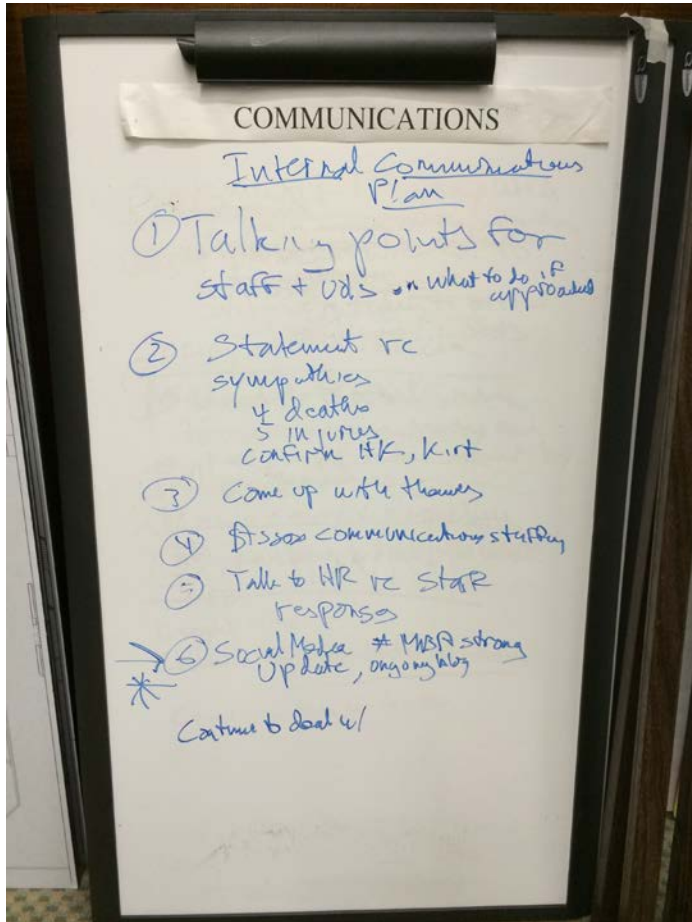 COMMUNICATIONS
Internal Communications
Plan
① Talking points for
staff + on what to do if
approached
② Statement re
sympathies
4 deaths
5 injuries
confirm HK, Kirt
③ Come up with
④ Assess communications staffing
⑤ Talk to HR re staff
responses
⑥ Social Media # strong
Update, ongoing
Continue to deal w/